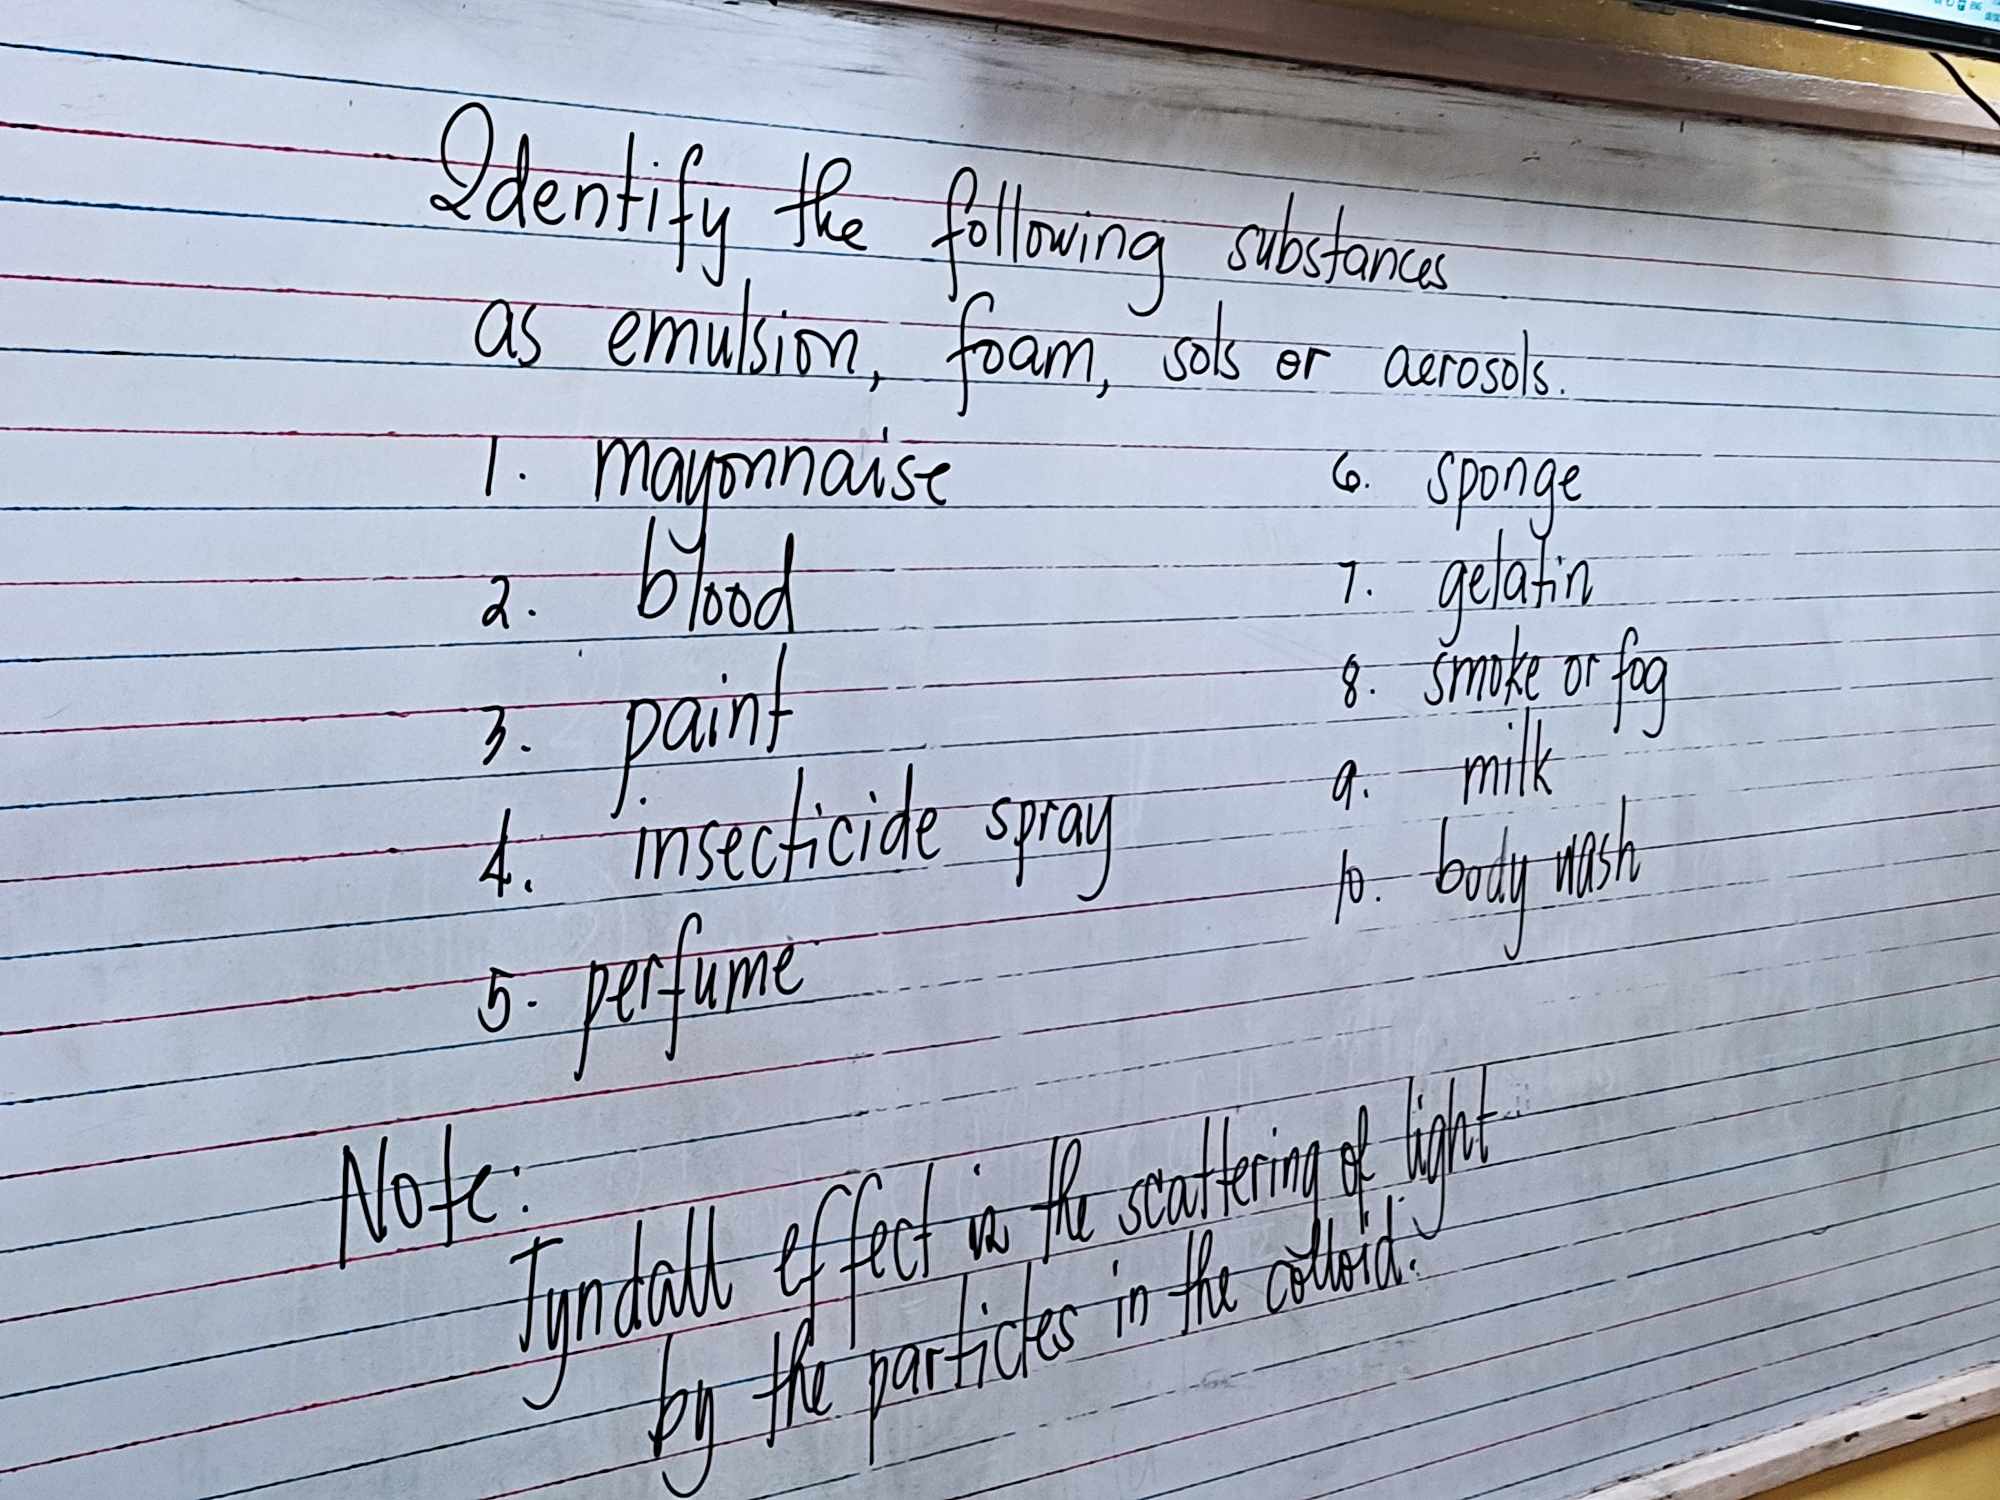 Identify the following substances
as emulsion, foam, sols or aerosols.
1. mayonnaise
2. blood
3. paint
4. insecticide spray
5. perfume
6. sponge
7. gelatin
8. smoke or fog
9. milk
10. body wash
Note:
Tyndall effect is the scattering of light
by the particles in the colloid.